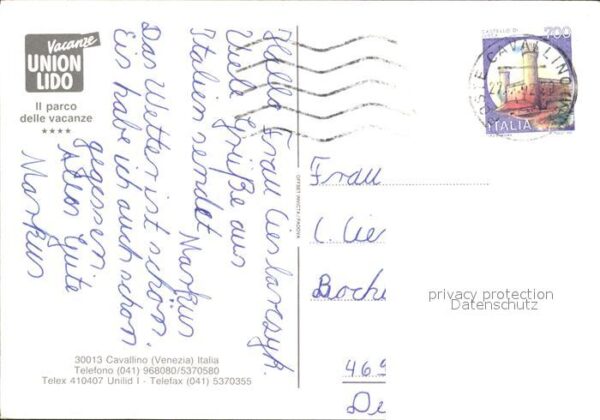 Vacanze
UNION
LIDO
Il parco
delle vacanze
★★★★
Hallo Frau Cieslarczyk.
Viele Grüße aus
Italien sendet Markus
Das Wetter ist schön.
Eis habe ich auch schon
gegessen
Alles Gute
Markus
30013 Cavallino (Venezia) Italia
Telefono (041) 968080/5370580
Telex 410407 Unilid I - Telefax (041) 5370355
OFFSET INVICTA/PADOVA
CASTELLO DI
700
ITALIA
POSTE CAVALLINO
Frau
C. Cie
Boche
privacy protection
Datenschutz
469
De